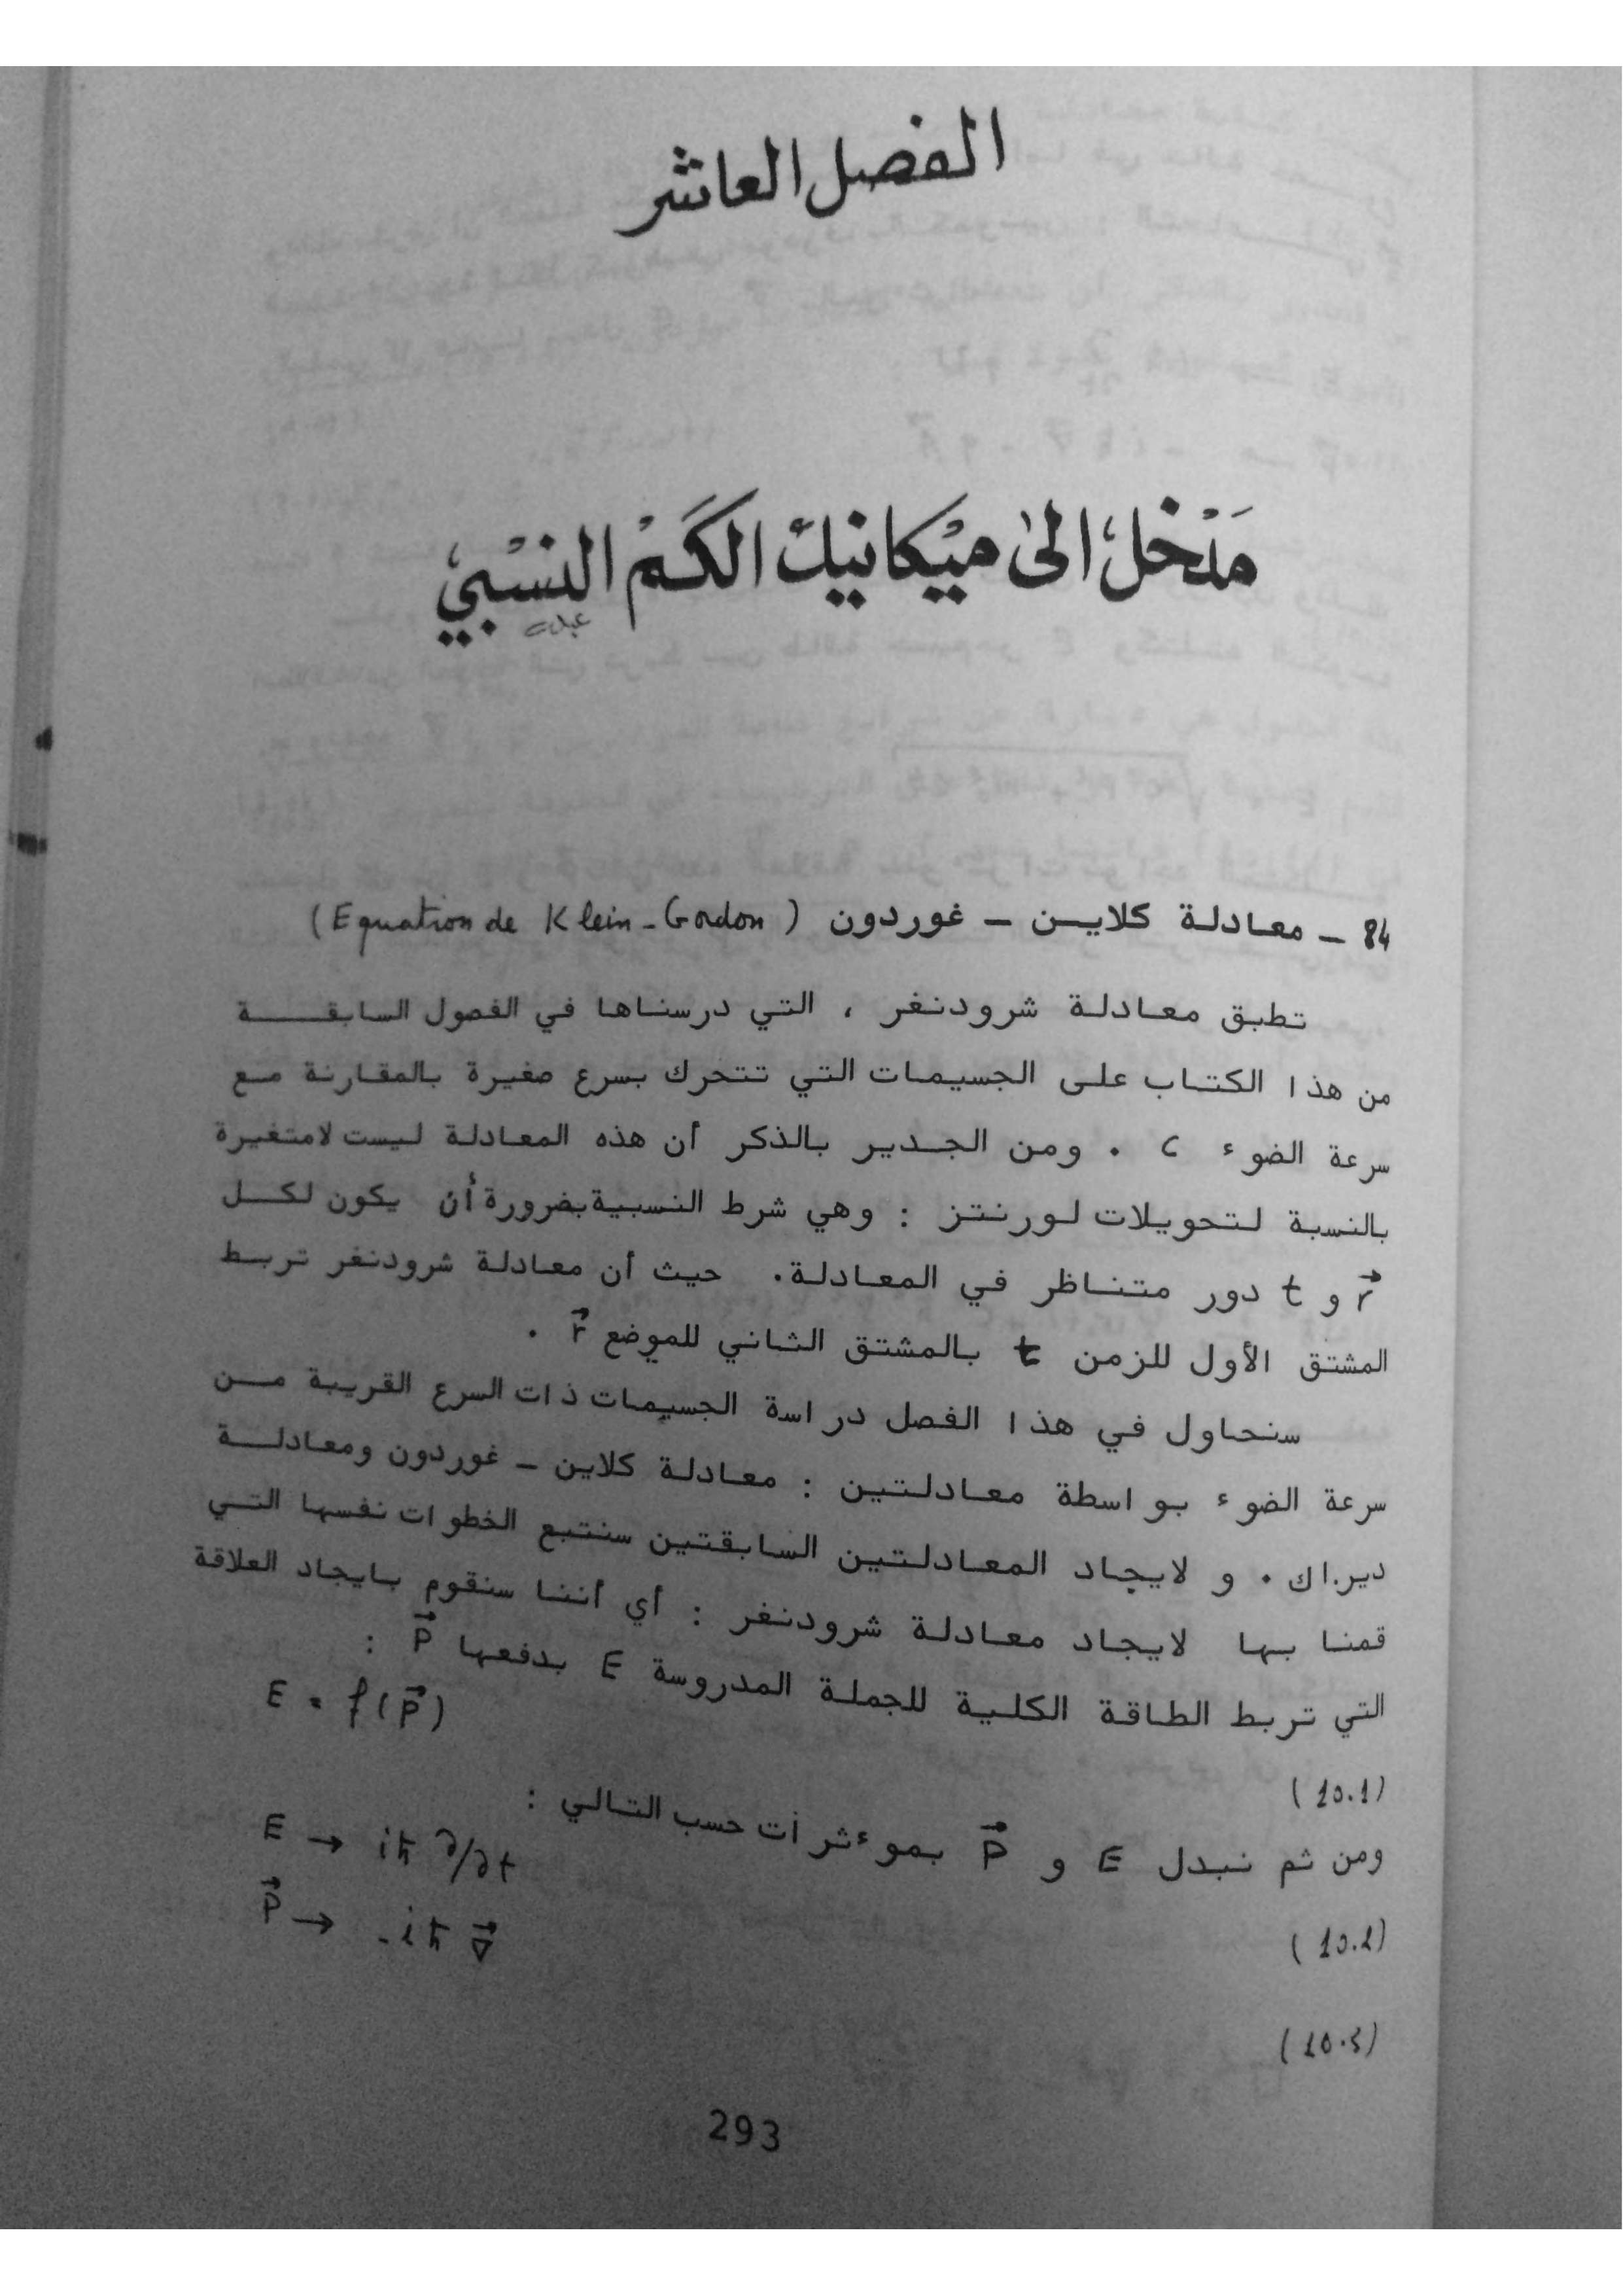 الفصل العاشر
مَدْخل إلى ميْكانيك الكَمْ النسْبي
84 – معادلة كلاين – غوردون (Equation de Klein-Gordon)
تطبق معادلة شرودنغر ، التي درسناها في الفصول السابقة
من هذا الكتاب على الجسيمات التي تتحرك بسرع صغيرة بالمقارنة مع
سرعة الضوء c . ومن الجدير بالذكر أن هذه المعادلة ليست لامتغيرة
بالنسبة لتحويلات لورنتز : وهي شرط النسبية بضرورة أن يكون لكل
r⃗ و t دور متناظر في المعادلة. حيث أن معادلة شرودنغر تربط
المشتق الأول للزمن t بالمشتق الثاني للموضع r⃗ .
سنحاول في هذا الفصل دراسة الجسيمات ذات السرع القريبة من
سرعة الضوء بواسطة معادلتين : معادلة كلاين – غوردون ومعادلة
ديراك . و لايجاد المعادلتين السابقتين سنتبع الخطوات نفسها التي
قمنا بها لايجاد معادلة شرودنغر : أي أننا سنقوم بايجاد العلاقة
التي تربط الطاقة الكلية للجملة المدروسة E بدفعها P⃗ :
E = f(p⃗)
(10.1)
ومن ثم نبدل E و P⃗ بموءثرات حسب التالي :
E → iħ ∂/∂t
(10.2)
P⃗ → -iħ ∇⃗
(10.3)
293